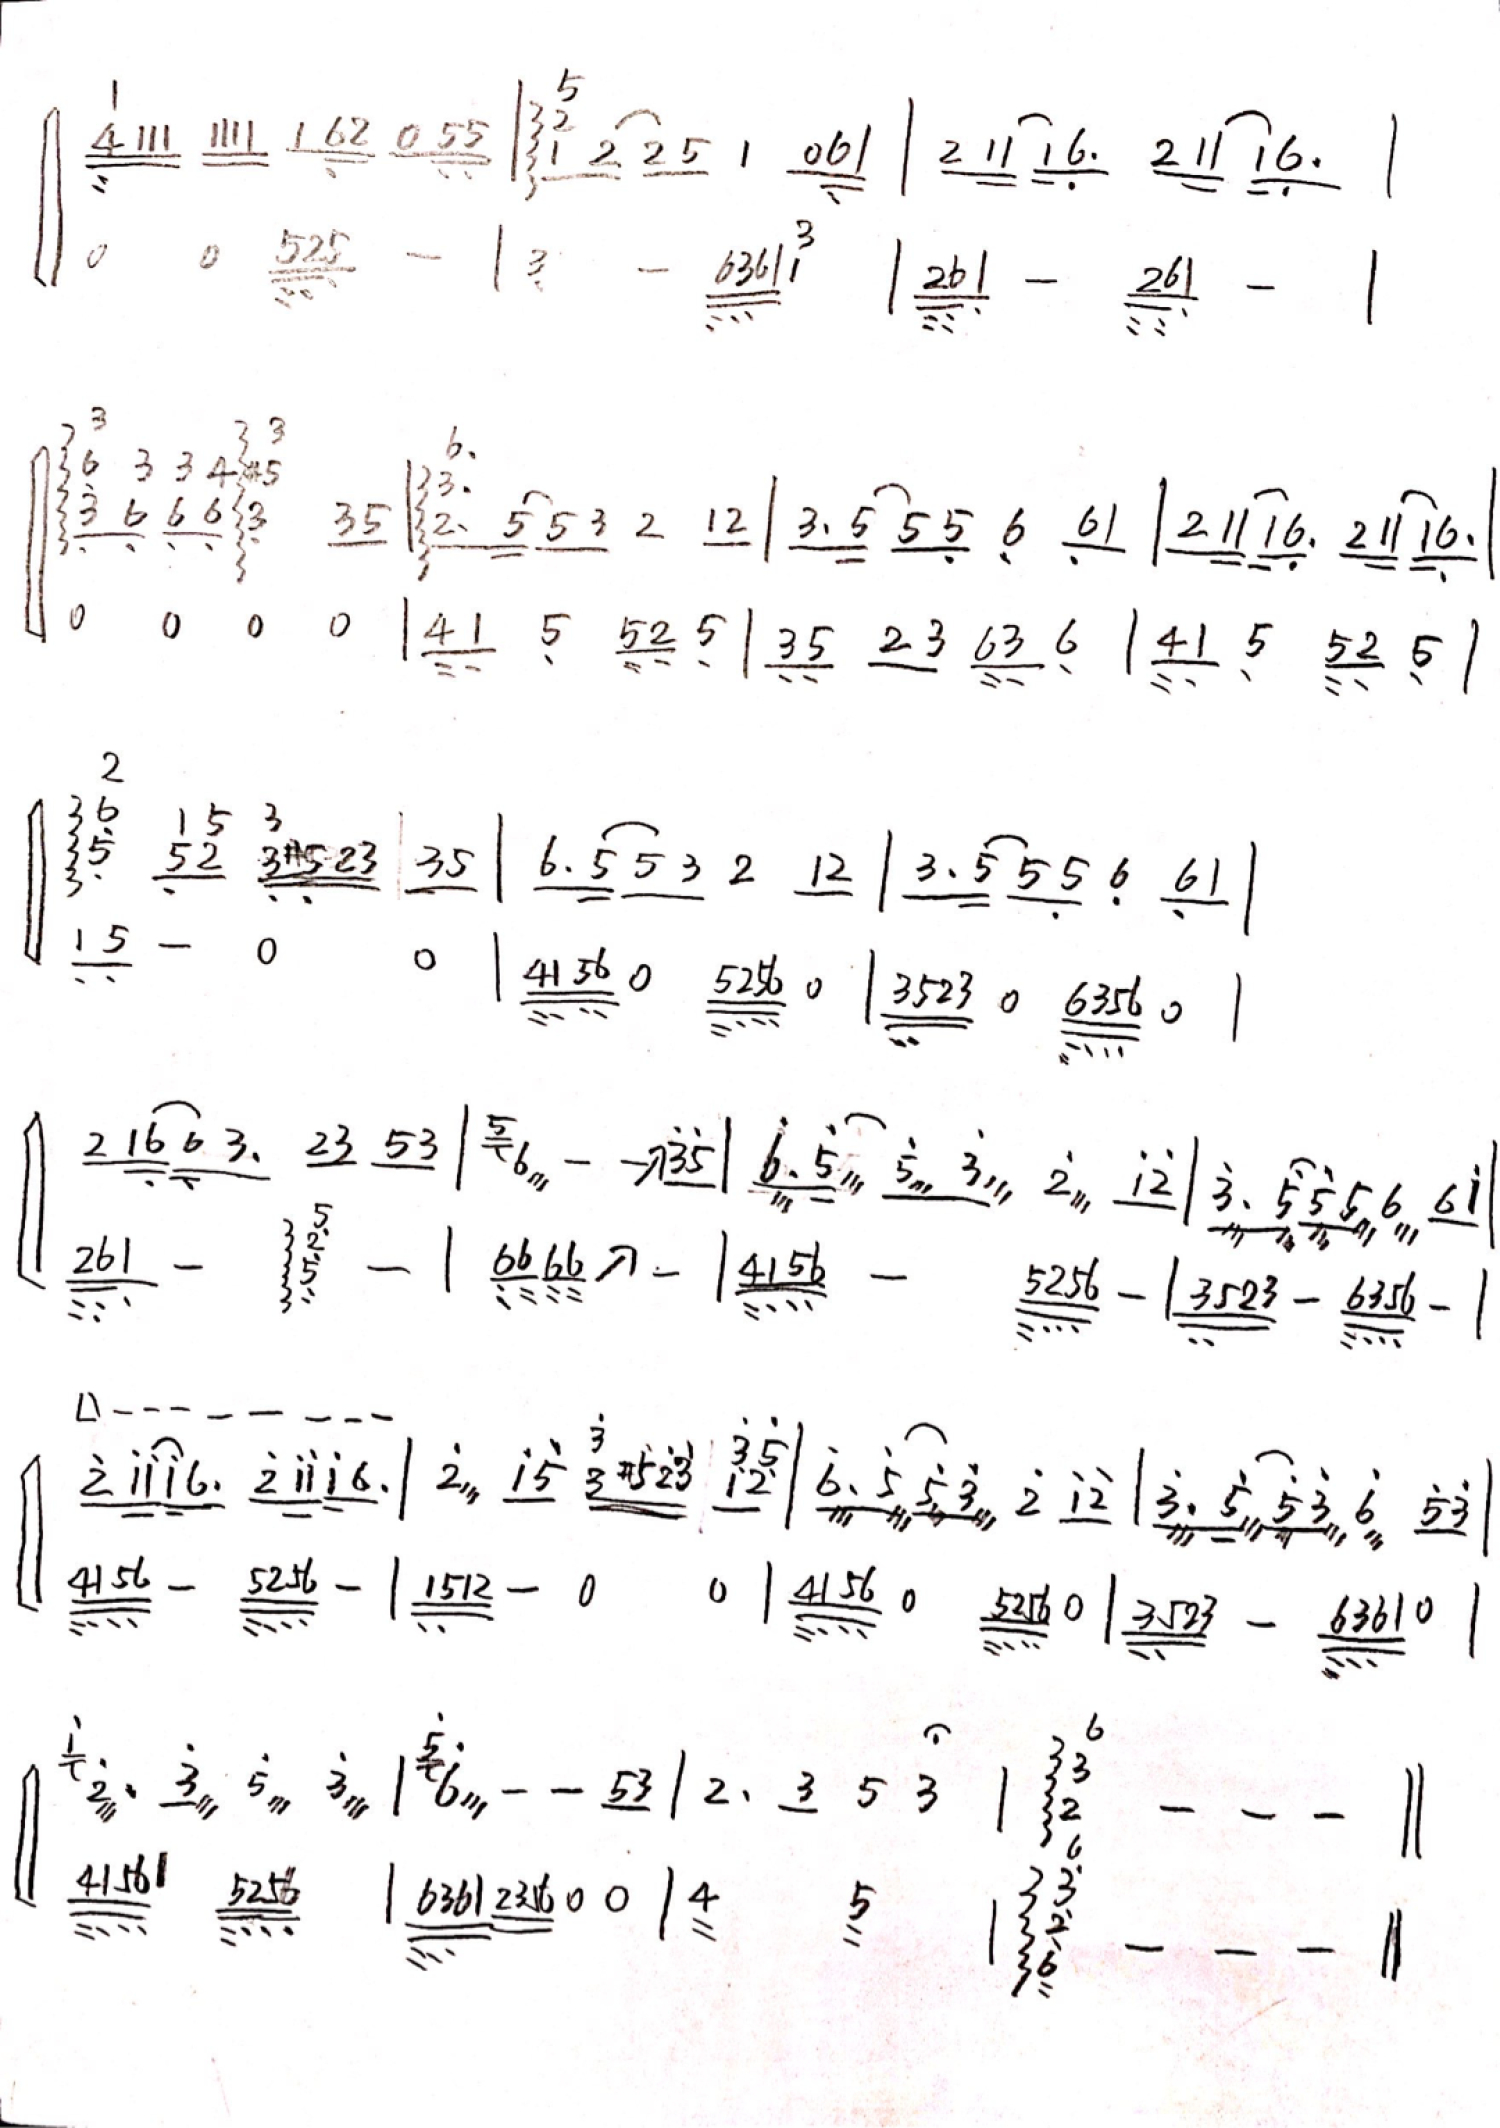 1
5
2
4111 1111 162 055 | 1 2 2 5 1 061 | 2 11 16. 211 16. |
0 0 525 - | 3 - 6361 1 3 | 261 - 261 - |
3 3 6.
6 3 3 4 #5 3.
3 6 6 6 3 35 | 2. 5 5 3 2 12 | 3. 5 5 5 6 61 | 211 16. 211 16. |
0 0 0 0 | 41 5 52 5 | 35 23 63 6 | 41 5 52 5 |
2
6 15 3
5 52 3#523 | 35 | 6. 5 5 3 2 12 | 3. 5 5 5 6 61 |
15 - 0 0 | 4156 0 5256 0 | 3523 0 6356 0 |
2 16 6 3. 23 53 | 5 6 - - 35 | 6. 5 5 3 2 12 | 3. 5 5 5 6 61 |
5
2
261 - 5 - | 66 66 - | 4156 - 5256 - | 3523 - 6356 - |
3 35
2 11 16. 2 11 16. | 2 15 3#523 12 | 6. 5 5 3 2 12 | 3. 5 5 3 6 53 |
4156 - 5256 - | 1512 - 0 0 | 4156 0 5256 0 | 3523 - 6361 0 |
1 5 6
3
2. 3 5 3 | 6 - - 53 | 2. 3 5 3 | 2 - - - ||
6
3
4156 5256 | 6361 2356 0 0 | 4 5 | 2
6 - - - ||